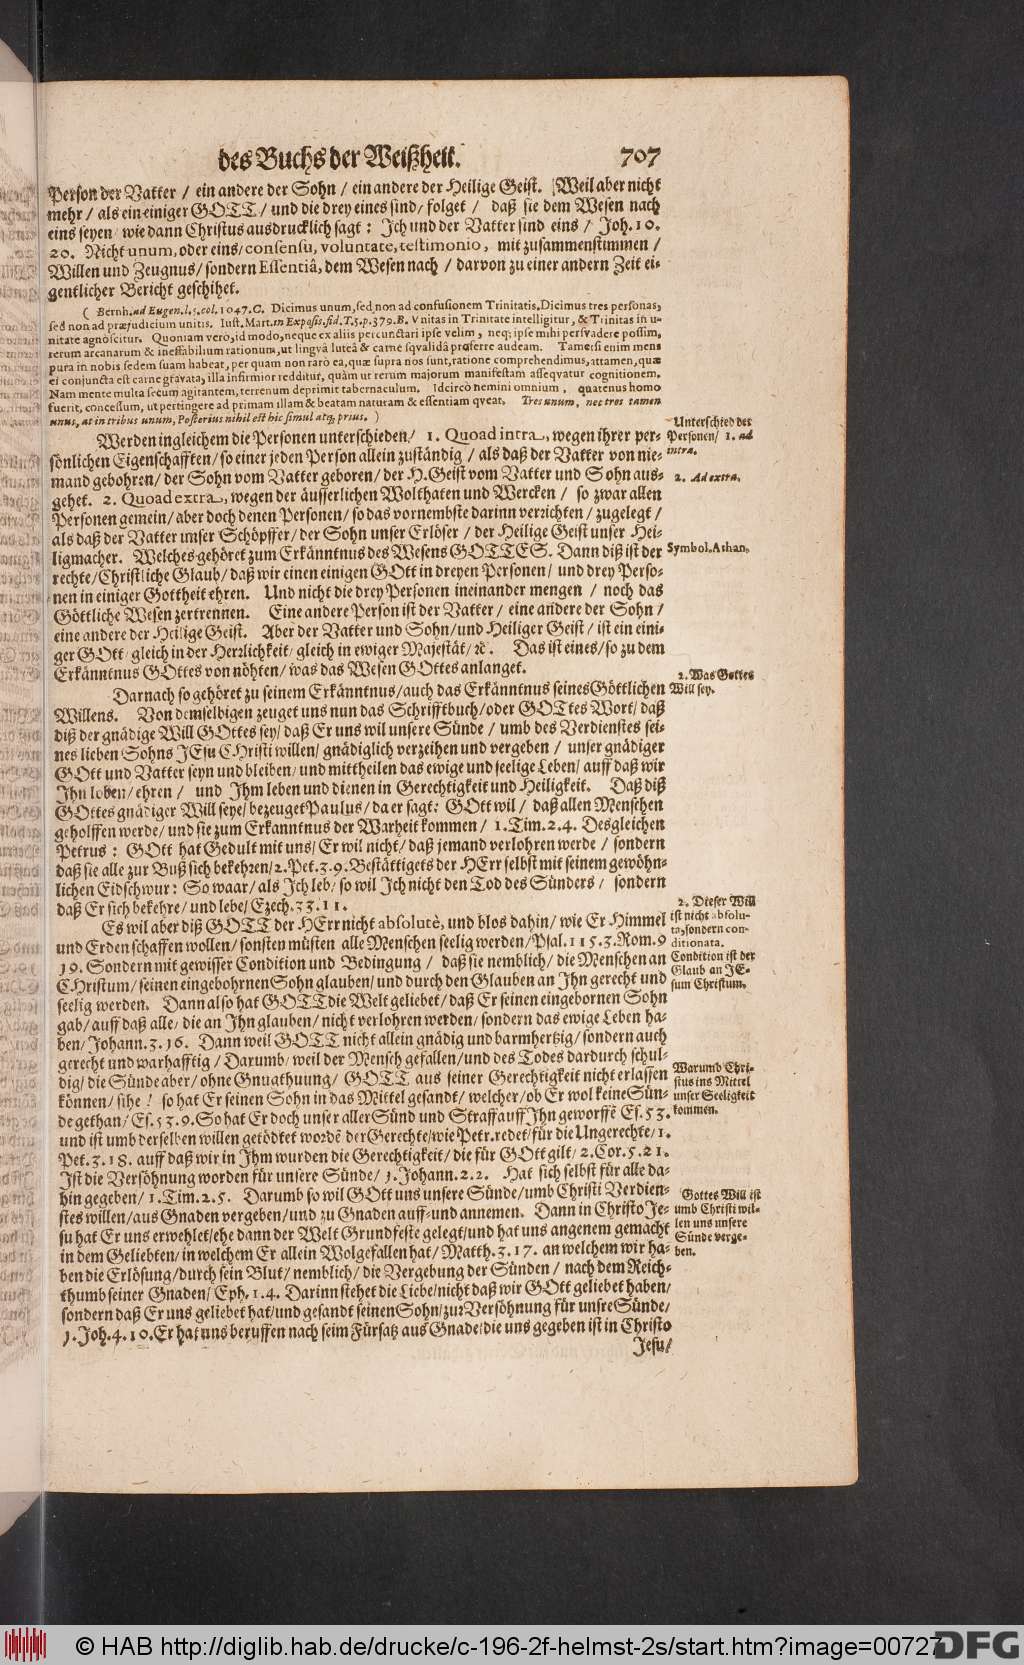 des Buchs der Weißheit. 707
Person der Vatter / ein andere der Sohn / ein andere der Heilige Geist. Weil aber nicht
mehr / als ein einiger GOTT / und die drey eines sind / folget / daß sie dem Wesen nach
eins seyen / wie dann Christus ausdrucklich sagt: Ich und der Vatter sind eins / Joh. 10.
20. Nicht unum, oder eins / consensu, voluntate, testimonio, mit zusammenstimmen /
Willen und Zeugnus / sondern Essentiâ, dem Wesen nach / darvon zu einer andern Zeit ei-
gentlicher Bericht geschihet.
( Bernh. ad Eugen. l. 5. col. 1047. C. Dicimus unum, sed non ad confusionem Trinitatis. Dicimus tres personas,
sed non ad præjudicium unitis. Iust. Mart. in Exposis. fid. T. 5. p. 379. B. Vnitas in Trinitate intelligitur, & Trinitas in u-
nitate agnoscitur. Quoniam vero, id modo, neque ex aliis percunctari ipse velim, neq; ipse mihi persvadere possim,
rerum arcanarum & ineffabilium rationum, ut lingvâ luteâ & carne sqvalidâ proferre audeam. Tametsi enim mens
pura in nobis sedem suam habeat, per quam non rarò ea, quæ supra nos sunt, ratione comprehendimus, attamen, quæ
ei conjuncta est carne gravata, illa infirmior redditur, quàm ut rerum majorum manifestam asseqvatur cognitionem.
Nam mente multa secum agitantem, terrenum deprimit tabernaculum. Idcircò nemini omnium, quatenus homo
fuerit, concessum, ut pertingere ad primam illam & beatam naturam & essentiam qveat. Tres unum, nec tres tamen
unus, at in tribus unum, Posterius nihil est hic simul atq; prius. )
Werden ingleichem die Personen unterschieden / 1. Quoad intra, wegen ihrer per-
sönlichen Eigenschafften / so einer jeden Person allein zuständig / als daß der Vatter von nie-
mand gebohren / der Sohn vom Vatter geboren / der H. Geist vom Vatter und Sohn aus-
gehet. 2. Quoad extra, wegen der äusserlichen Wolthaten und Wercken / so zwar allen
Personen gemein / aber doch denen Personen / so das vornembste darinn verrichten / zugelegt /
als daß der Vatter unser Schöpffer / der Sohn unser Erlöser / der Heilige Geist unser Hei-
ligmacher. Welches gehöret zum Erkänntnus des Wesens GOTTES. Dann diß ist der
rechte / Christliche Glaub / daß wir einen einigen GOtt in dreyen Personen / und drey Perso-
nen in einiger Gottheit ehren. Und nicht die drey Personen ineinander mengen / noch das
Göttliche Wesen zertrennen. Eine andere Person ist der Vatter / eine andere der Sohn /
eine andere der Heilige Geist. Aber der Vatter und Sohn / und Heiliger Geist / ist ein eini-
ger GOtt / gleich in der Herrlichkeit / gleich in ewiger Majestät / ꝛc. Das ist eines / so zu dem
Erkänntnus GOttes von nöhten / was das Wesen GOttes anlanget.
Darnach so gehöret zu seinem Erkänntnus / auch das Erkänntnus seines Göttlichen
Willens. Von demselbigen zeuget uns nun das Schrifftbuch / oder GOttes Wort / daß
diß der gnädige Will GOttes sey / daß Er uns wil unsere Sünde / umb des Verdienstes sei-
nes lieben Sohns JEsu CHristi willen / gnädiglich verzeihen und vergeben / unser gnädiger
GOtt und Vatter seyn und bleiben / und mittheilen das ewige und seelige Leben / auff daß wir
Ihn loben / ehren / und Ihm leben und dienen in Gerechtigkeit und Heiligkeit. Daß diß
GOttes gnädiger Will seye / bezeuget Paulus / da er sagt: GOtt wil / daß allen Menschen
geholffen werde / und sie zum Erkanntnus der Warheit kommen / 1. Tim. 2. 4. Desgleichen
Petrus: GOtt hat Gedult mit uns / Er wil nicht / daß jemand verlohren werde / sondern
daß sie alle zur Buß sich bekehren / 2. Pet. 3. 9. Bestättigets der HErr selbst mit seinem gewöhn-
lichen Eidschwur: So waar / als Ich leb / so wil Ich nicht den Tod des Sünders / sondern
daß Er sich bekehre / und lebe / Ezech. 33. 11.
Es wil aber diß GOTT der HErr nicht absolutè, und blos dahin / wie Er Himmel
und Erden schaffen wollen / sonsten müsten alle Menschen seelig werden / Psal. 115. 3. Rom. 9
19. Sondern mit gewisser Condition und Bedingung / daß sie nemblich / die Menschen an
CHristum / seinen eingebohrnen Sohn glauben / und durch den Glauben an Ihn gerecht und
seelig werden. Dann also hat GOTT die Welt geliebet / daß Er seinen eingebornen Sohn
gab / auff daß alle / die an Ihn glauben / nicht verlohren werden / sondern das ewige Leben ha-
ben / Johann. 3. 16. Dann weil GOTT nicht allein gnädig und barmhertzig / sondern auch
gerecht und warhafftig / Darumb / weil der Mensch gefallen / und des Todes dardurch schul-
dig / die Sünde aber / ohne Gnugthuung / GOTT aus seiner Gerechtigkeit nicht erlassen
können / sihe! so hat Er seinen Sohn in das Mittel gesandt / welcher / ob Er wol keine Sün-
de gethan / Es. 53. 9. So hat Er doch unser aller Sünd und Straff auff Ihn geworffē Es. 53.
und ist umb derselben willen getödtet wordē der Gerechte / wie Petr. redet / für die Ungerechte / 1.
Pet. 3. 18. auff daß wir in Ihm wurden die Gerechtigkeit / die für GOtt gilt / 2. Cor. 5. 21.
Ist die Versöhnung worden für unsere Sünde / 1. Johann. 2. 2. Hat sich selbst für alle da-
hin gegeben / 1. Tim. 2. 5. Darumb so wil GOtt uns unsere Sünde / umb Christi Verdien-
stes willen / aus Gnaden vergeben / und zu Gnaden auff- und annemen. Dann in Christo Je-
su hat Er uns erwehlet / ehe dann der Welt Grundfeste gelegt / und hat uns angenem gemacht
in dem Geliebten / in welchem Er allein Wolgefallen hat / Matth. 3. 17. an welchem wir ha-
ben die Erlösung / durch sein Blut / nemblich / die Vergebung der Sünden / nach dem Reich-
thumb seiner Gnaden / Eph. 1. 4. Darinn stehet die Liebe / nicht daß wir GOtt geliebet haben /
sondern daß Er uns geliebet hat / und gesandt seinen Sohn / zur Versöhnung für unsre Sünde /
1. Joh. 4. 10. Er hat uns beruffen nach seim Fürsatz aus Gnade / die uns gegeben ist in Christo
Jesu /
Unterschied der
Personen / 1. ad
intra.
2. Ad extra.
Symbol. Athan.
2. Was Gottes
Will sey.
2. Dieser Will
ist nicht absolu-
ta, sondern con-
ditionata.
Condition ist der
Glaub an JE-
sum Christum.
Warumb Chri-
stus ins Mittel
unser Seeligkeit
kommen.
Gottes Will ist
umb Christi wil-
len uns unsere
Sünde verge-
ben.
© HAB http://diglib.hab.de/drucke/c-196-2f-helmst-2s/start.htm?image=00727
DFG